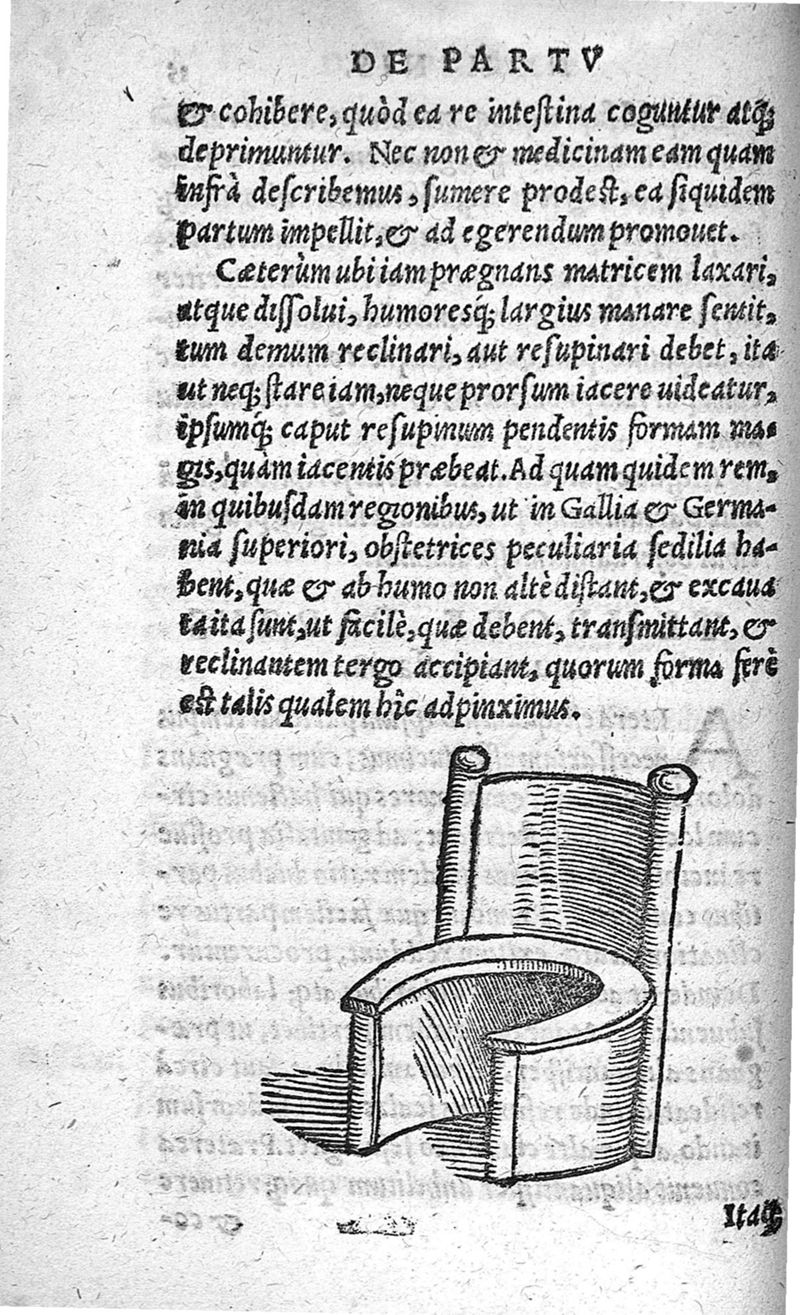 DE PARTV
& cohibere, quòd ea re intestina coguntur atq;
deprimuntur. Nec non & medicinam eam quam
infrà describemus, sumere prodest, ea siquidem
partum impellit, & ad egerendum promouet.
Cæterùm ubi iam prægnans matricem laxari,
atque dissolui, humoresq; largius manare sentit,
tum demum reclinari, aut resupinari debet, ita
ut neq; stare iam, neque prorsum iacere uideatur,
ipsumq; caput resupinum pendentis formam ma-
gis, quàm iacentis præbeat. Ad quam quidem rem,
in quibusdam regionibus, ut in Gallia & Germa-
nia superiori, obstetrices peculiaria sedilia ha-
bent, quæ & ab humo non altè distant, & excaua
ta ita sunt, ut facilè, quæ debent, transmittant, &
reclinantem tergo accipiant, quorum forma ferè
est talis qualem hîc adpinximus.
Itaq;